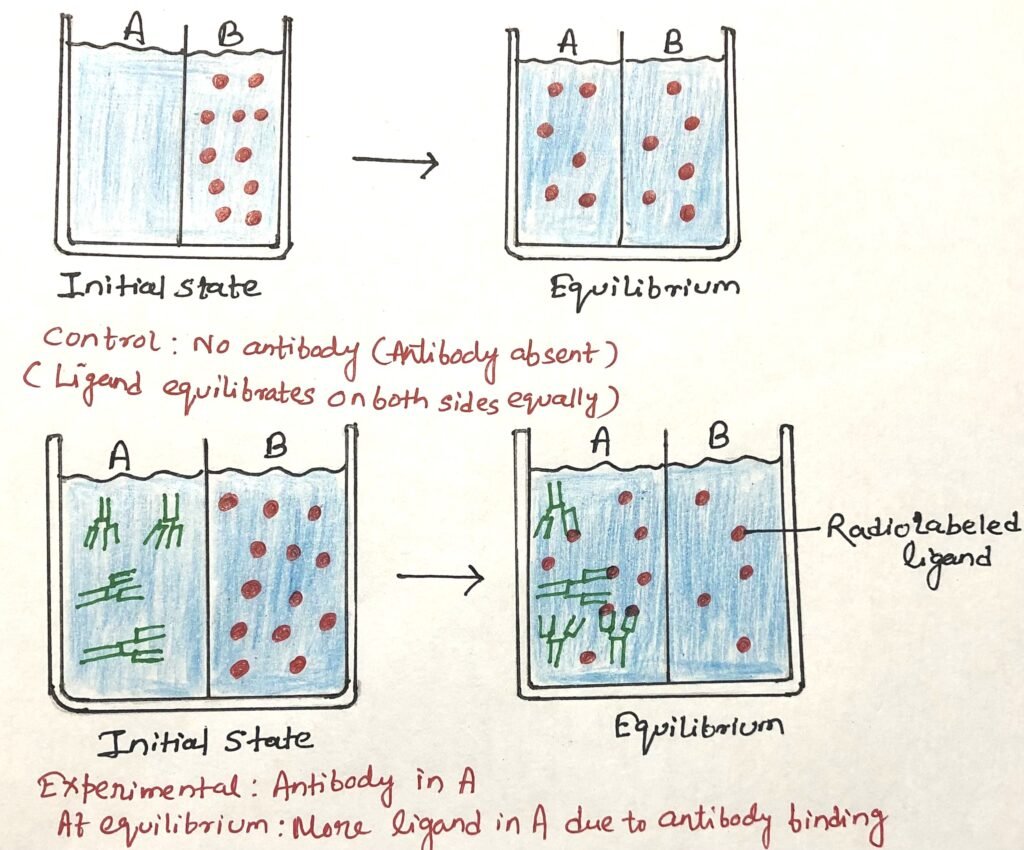 A B
A B
Initial state
Equilibrium
Control: No antibody (Antibody absent)
(Ligand equilibrates on both sides equally)
A B
A B
Radiolabeled
ligand
Initial State
Equilibrium
Experimental: Antibody in A
At equilibrium: More ligand in A due to antibody binding